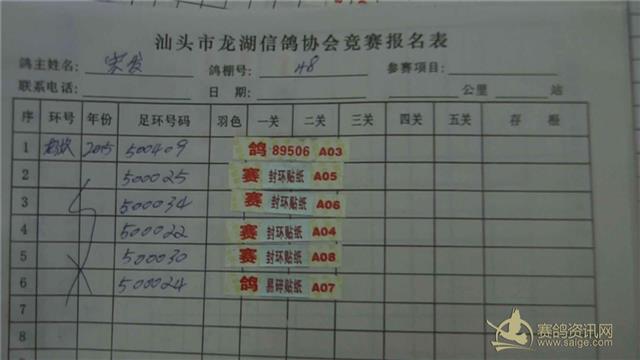 汕头市龙湖信鸽协会竞赛报名表
鸽主姓名: 鸽棚号: 48 参赛项目:
联系电话: 日期: 公里 站
序 环号 年份 足环号码 羽色 一关 二关 三关 四关 五关 存棚
1 2015 500409 鸽 89506 A03
2 500025 赛 封环贴纸 A05
3 500034 赛 封环贴纸 A06
4 500022 赛 封环贴纸 A04
5 500030 赛 封环贴纸 A08
6 500024 鸽 易碎贴纸 A07
7
8
赛鸽资讯网
www.saige.com